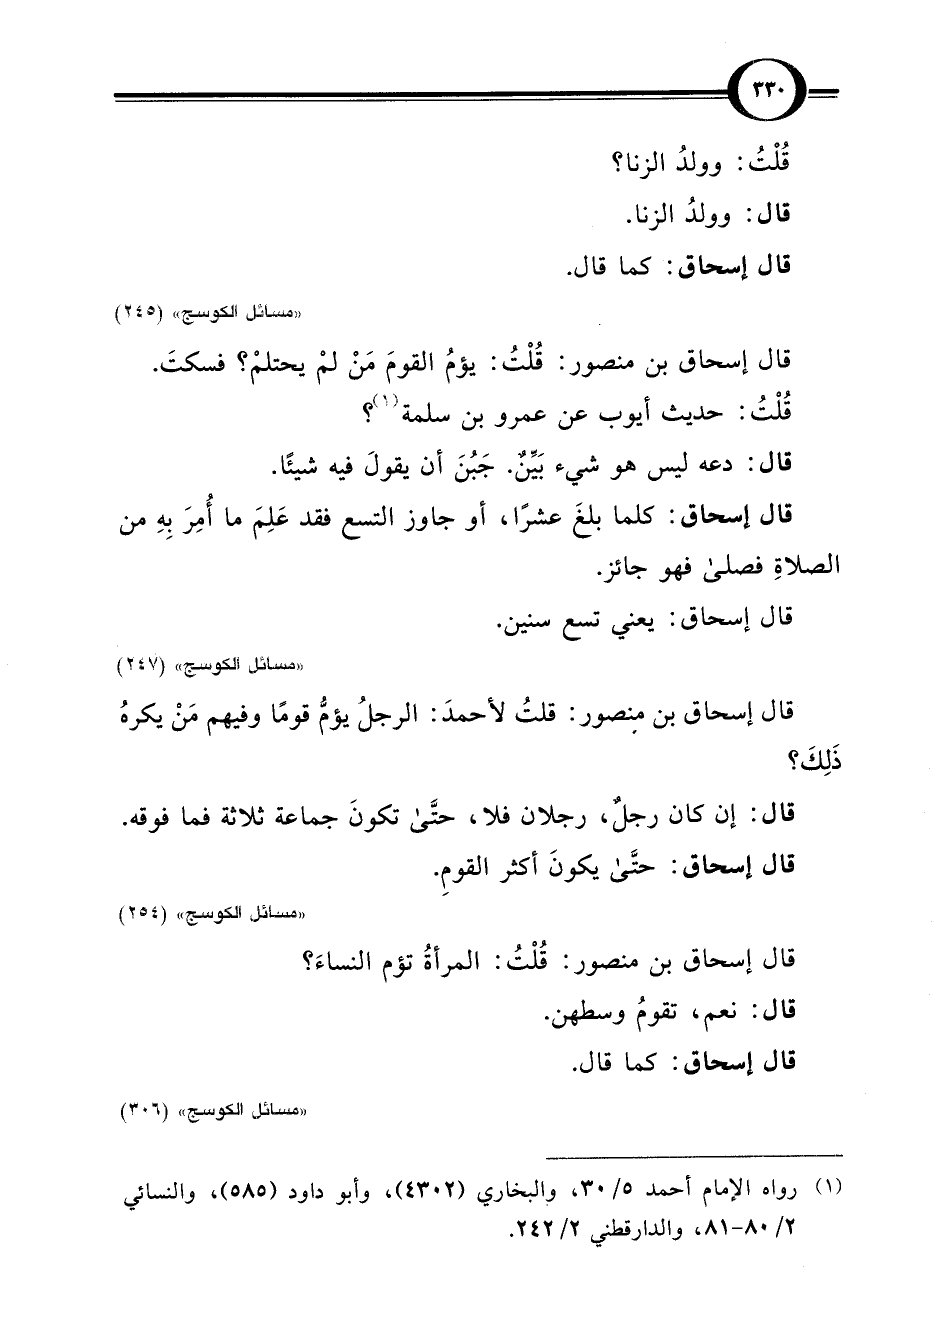 ٣٣٠
قُلْتُ: وولدُ الزنا؟
قال: وولدُ الزنا.
قال إسحاق: كما قال.
«مسائل الكوسج» (٢٤٥)
قال إسحاق بن منصور: قُلْتُ: يؤمُ القومَ مَنْ لمْ يحتلمْ؟ فسكتَ.
قُلْتُ: حديث أيوب عن عمرو بن سلمة(١)؟
قال: دعه ليس هو شيء بَيِّنٌ. جَبُنَ أن يقولَ فيه شيئًا.
قال إسحاق: كلما بلغَ عشرًا، أو جاوز التسع فقد عَلِمَ ما أُمِرَ بِهِ من
الصلاةِ فصلىٰ فهو جائز.
قال إسحاق: يعني تسع سنين.
«مسائل الكوسج» (٢٤٧)
قال إسحاق بن منصور: قلتُ لأحمدَ: الرجلُ يؤمُّ قومًا وفيهم مَنْ يكرهُ
ذَلِكَ؟
قال: إن كان رجلٌ، رجلان فلا، حتَّىٰ تكونَ جماعة ثلاثة فما فوقه.
قال إسحاق: حتَّىٰ يكونَ أكثر القومِ.
«مسائل الكوسج» (٢٥٤)
قال إسحاق بن منصور: قُلْتُ: المرأةُ تؤم النساءَ؟
قال: نعم، تقومُ وسطهن.
قال إسحاق: كما قال.
«مسائل الكوسج» (٣٠٦)
(١) رواه الإمام أحمد ٥/ ٣٠، والبخاري (٤٣٠٢)، وأبو داود (٥٨٥)، والنسائي
٢/ ٨٠-٨١، والدارقطني ٢/ ٢٤٢.